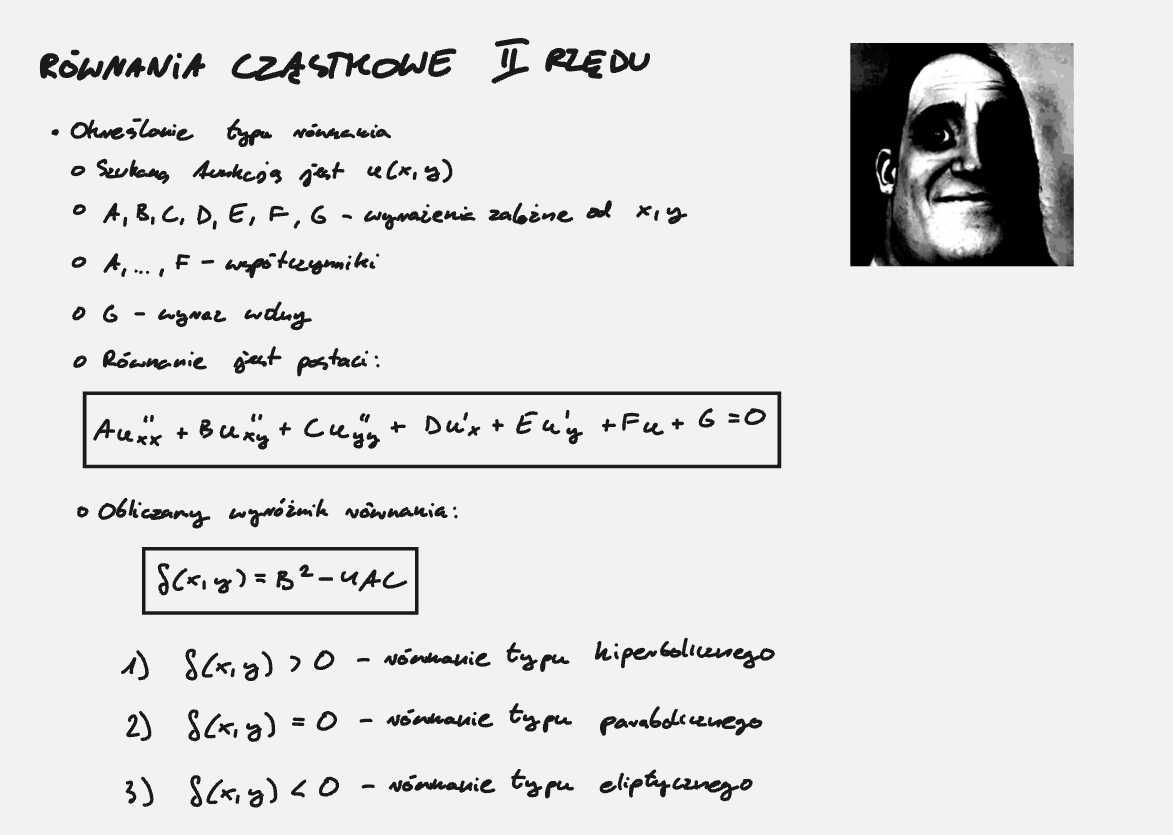 RÓWNANIA CZĄSTKOWE II RZĘDU
• Określanie typu równania
o Szukaną funkcją jest u(x,y)
o A, B, C, D, E, F, G - wyrażenia zależne od x,y
o A, ..., F - współczynniki
o G - wyraz wolny
o Równanie jest postaci:
Au''xx + Bu''xy + Cu''yy + Du'x + Eu'y + Fu + G = 0
o Obliczamy wyróżnik równania:
δ(x,y) = B² - 4AC
1) δ(x,y) > 0 - równanie typu hiperbolicznego
2) δ(x,y) = 0 - równanie typu parabolicznego
3) δ(x,y) < 0 - równanie typu eliptycznego